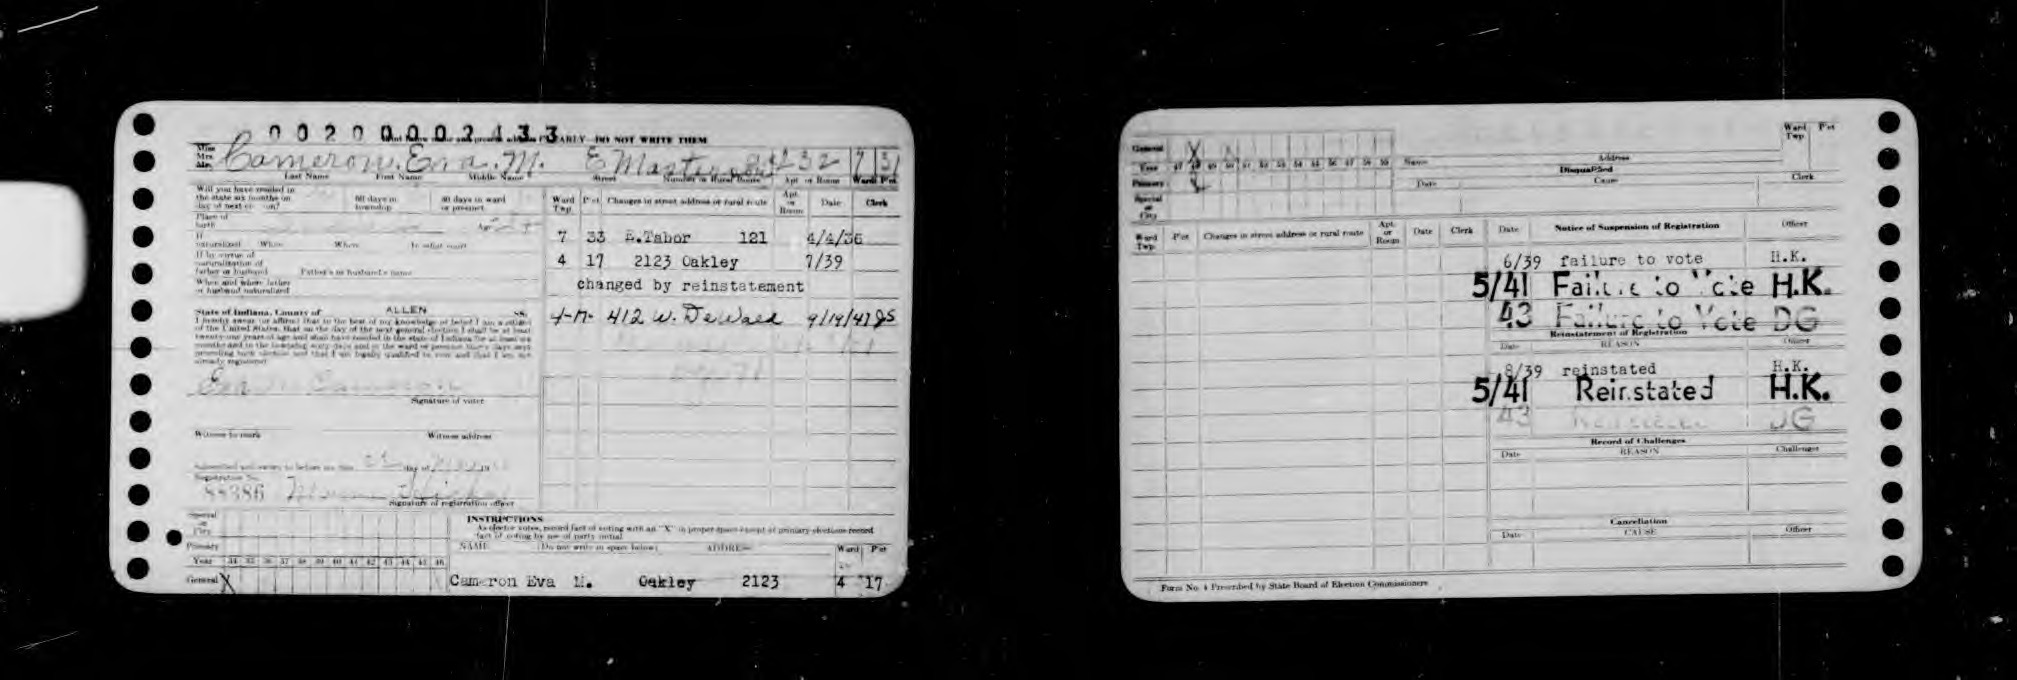 0 0 2 0 0 0 0 2 4 3 3 ARLY DO NOT WRITE THEM
Miss
Mrs.
Mr.
Cameron, Eva. M. E Masterson 232 7 31
Last Name First Name Middle Name Street Number or Rural Route Apt or Room Ward P'ct
Will you have resided in
the state six months on
day of next
60 days in
township
30 days in ward
or precinct
Place of
birth
Age
If
naturalized When Where In what court
If by virtue of
naturalization of
father or husband Father's or husband's name
When and where father
or husband naturalized
State of Indiana, County of ALLEN ss.
I hereby swear (or affirm) that to the best of my knowledge of belief I am a citizen
of the United States, that on the day of the next general election I shall be at least
twenty-one years of age and shall have resided in the state of Indiana for at least six
months and in the township sixty days and in the ward or precinct thirty days next
preceding such election and that I am legally qualified to vote and that I am not
already registered
Eva M Cameron
Signature of voter
Witness to mark Witness address
Subscribed and sworn to before me this day of 19
Registration No.
88386
Signature of registration officer
Ward
Twp P'ct Changes in street address or rural route Apt.
or
Room Date Clerk
7 33 E.Tabor 121 4/4/36
4 17 2123 Oakley 7/39
changed by reinstatement
4-17- 412 W. DeWald 9/19/47 JS
Special
or
City
Primary
Year 34 35 36 37 38 39 40 41 42 43 44 45 46
General X
INSTRUCTIONS
As elector votes, record fact of voting with an "X" in proper space except at primary elections record
fact of voting by use of party initial
NAME (Do not write in space below) ADDRESS Ward P'ct
Cameron Eva M. Oakley 2123 4 17
General X
Year 47 48 49 50 51 52 53 54 55 56 57 58 59
Primary
Special
or
City
Name Address Ward
Twp P'ct
Disqualified
Date Cause Clerk
Ward
Twp P'ct Changes in street address or rural route Apt.
or
Room Date Clerk
Date Notice of Suspension of Registration Officer
6/39 failure to vote H.K.
5/41 Failure to Vote H.K.
43 Failure to Vote DG
Reinstatement of Registration
Date REASON Officer
8/39 reinstated H.K.
5/41 Reinstated H.K.
43 Reinstated DG
Record of Challenges
Date REASON Challenger
Cancellation
Date CAUSE Officer
Form No. 4 Prescribed by State Board of Election Commissioners